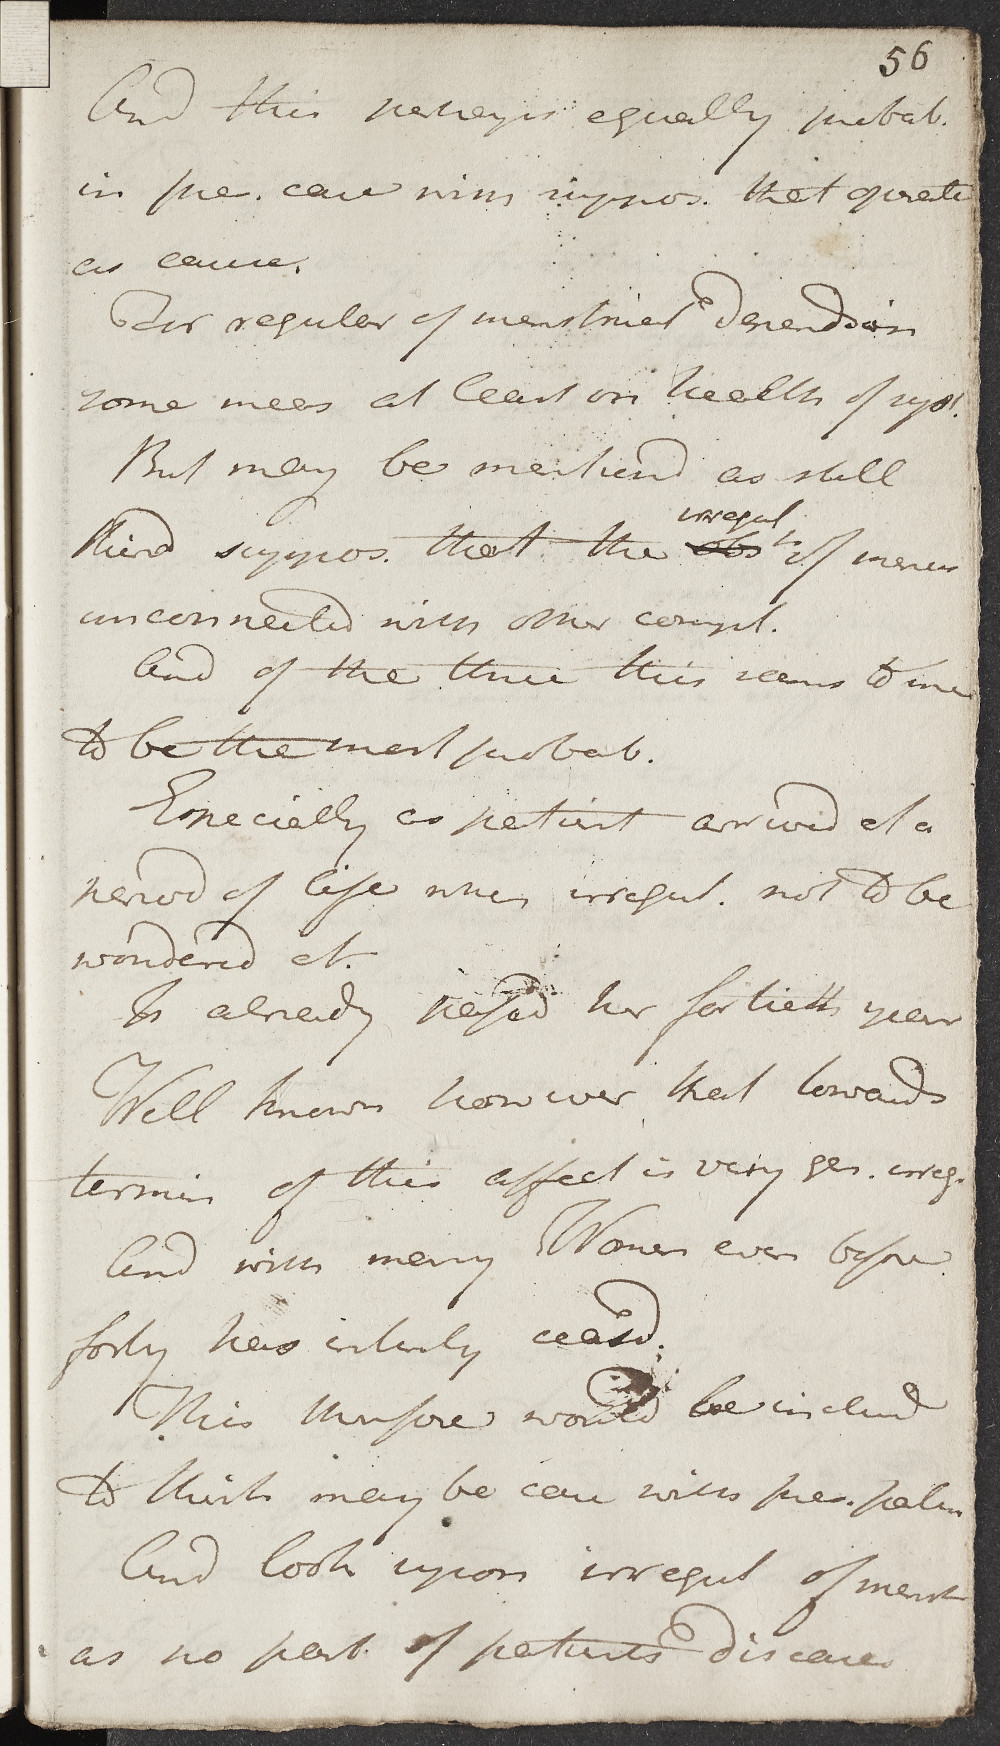 56
And this perhaps equally probab.
in pre. case with suppos. that operate
as cause.
For regular of menstruat depends in
some meas at least on health of syst.
But may be mentiond as still
third suppos. that the irregul of menses
unconnected with other compl.
And of the three this seems to me
to be the most probab.
Especially as patient arrived at a
period of life when irregul. not to be
wondered at.
Is already passd her fortieth year
Well known however that towards
termin of this affect is very gen. irreg.
And with many Women even before
forty has intirely ceasd.
This therefore would be inclind
to think may be case with pres. patien
And look upon irregul of menst
as no part of patients disease